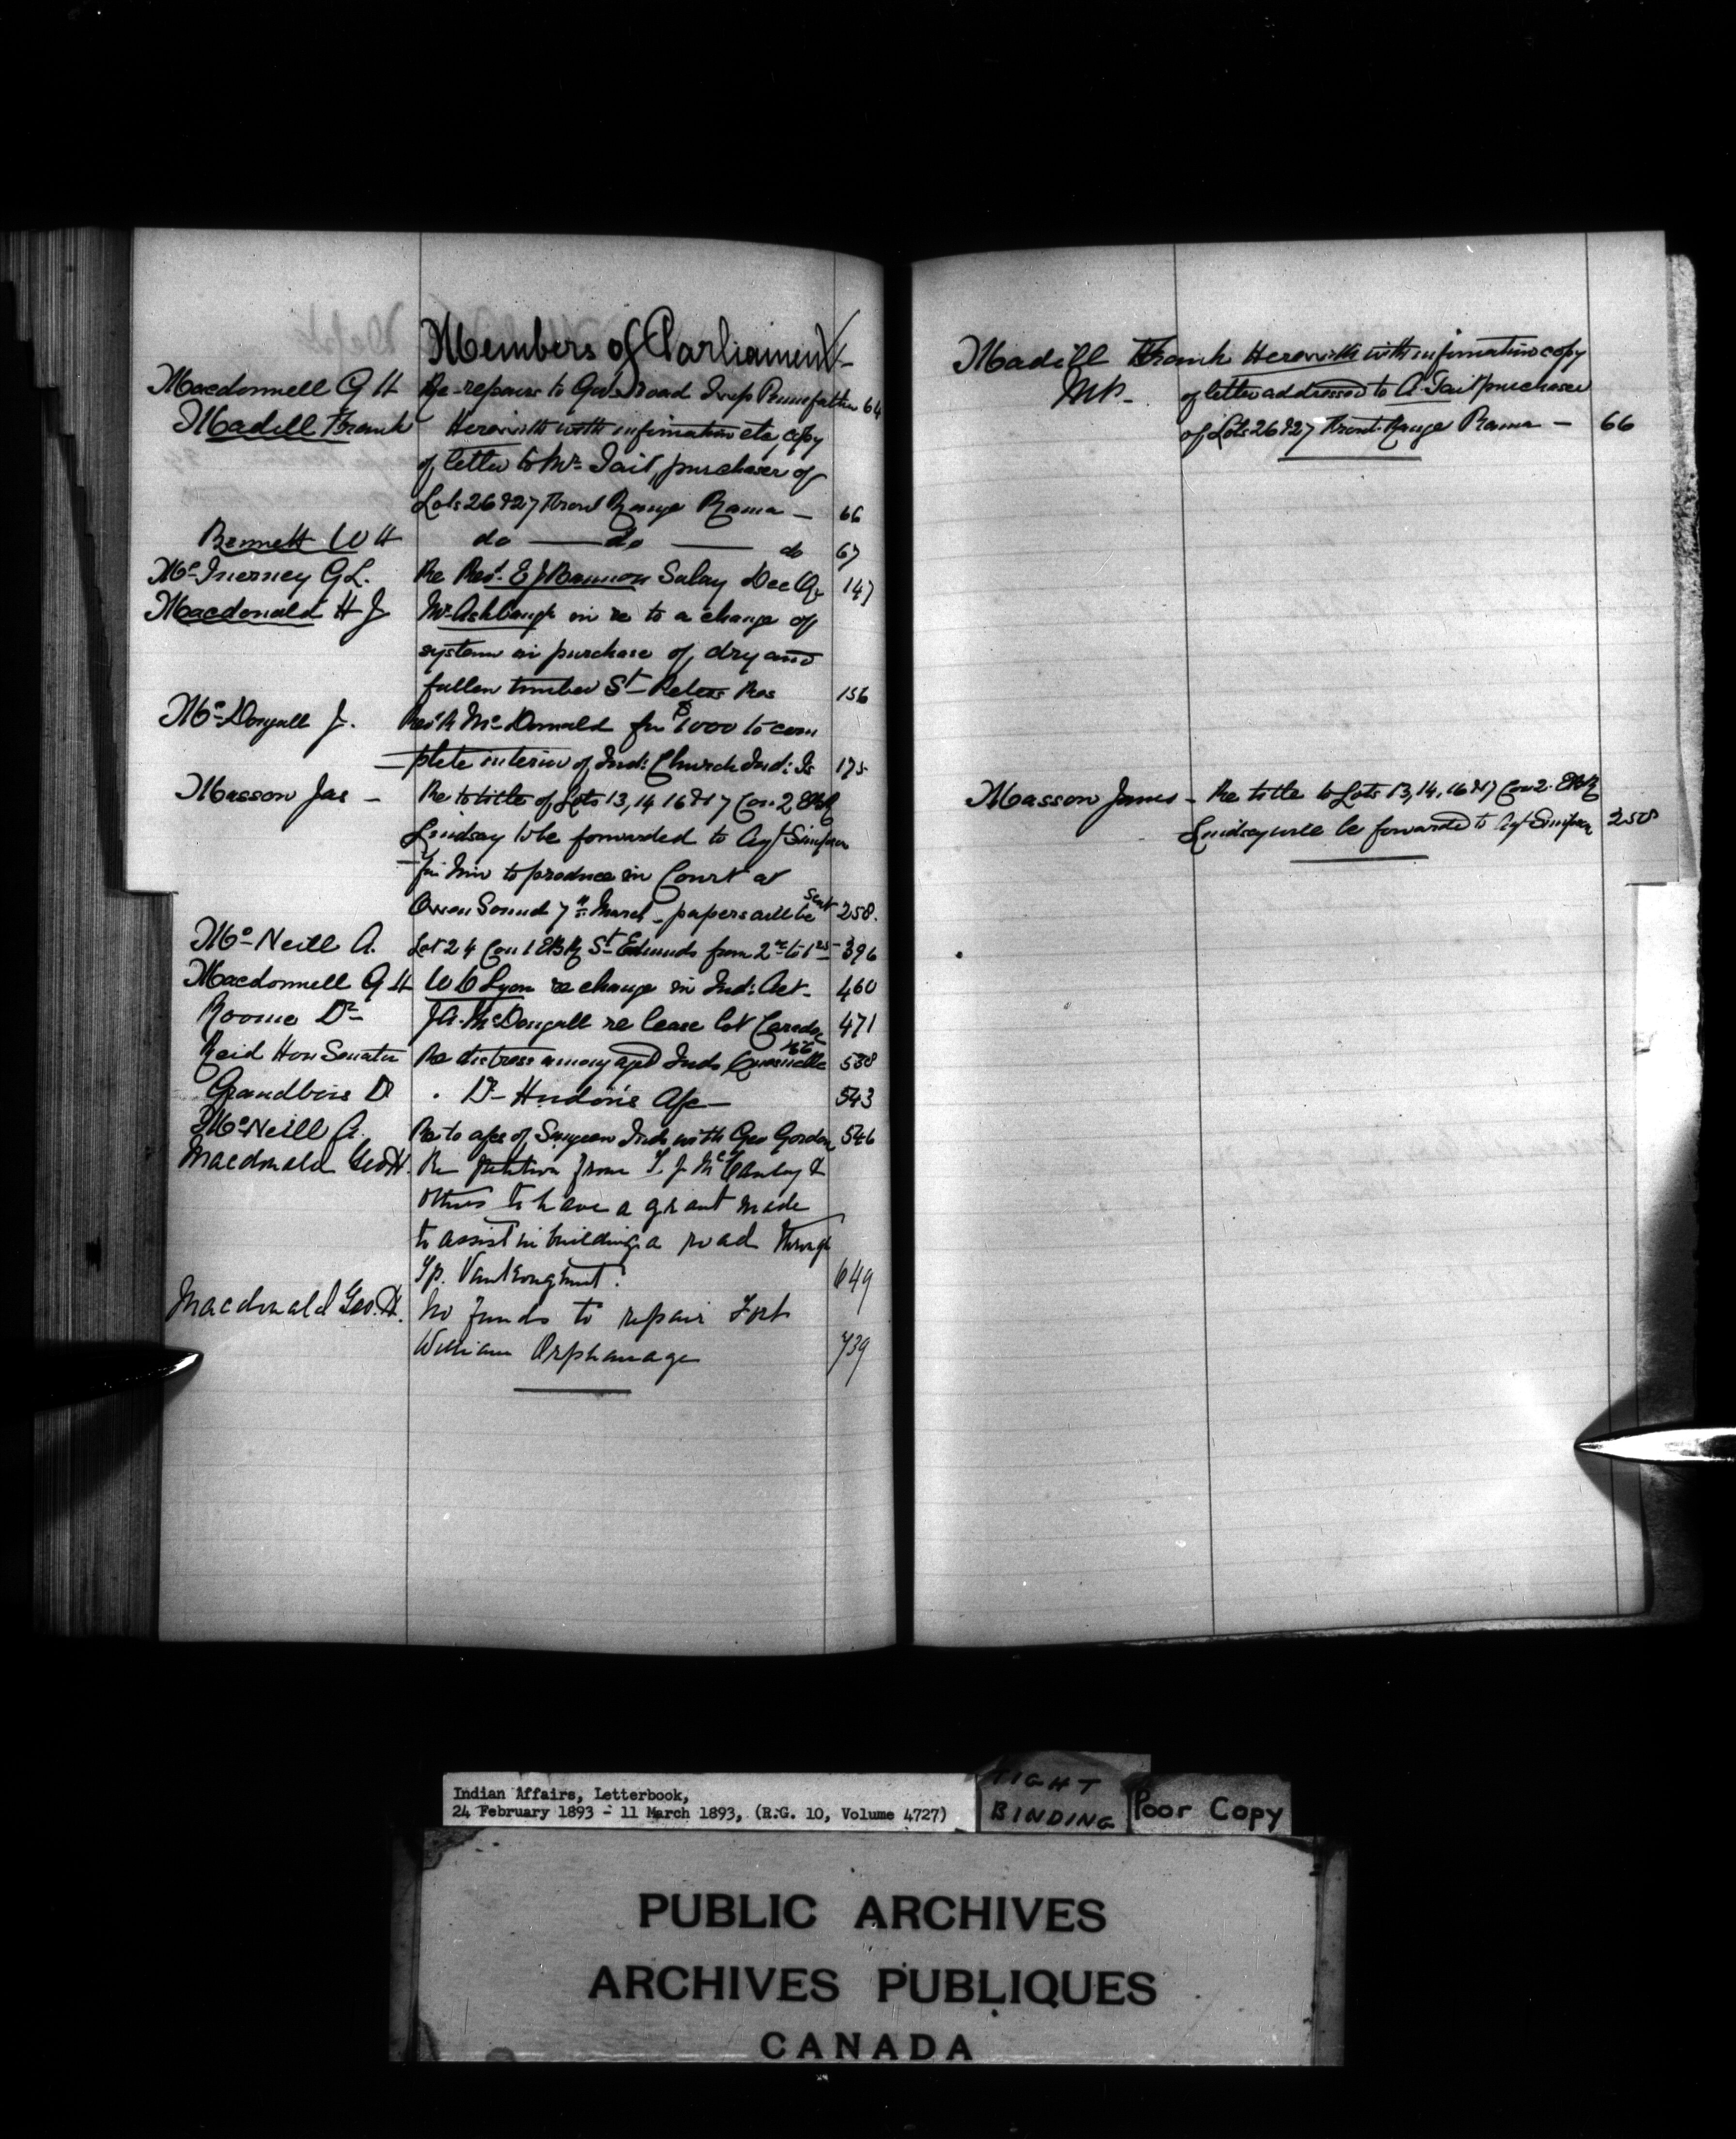 Members of Parliament
Macdonnell G H Re repairs to Govt road Insp Pennefather 64
Madill Frank Herewith with information etc, copy
of letter to Mr Tait, purchaser of
Lots 26 & 27 Front Range Rama — 66
Bennett W H do — do — do 67
McInerney G L. Re Revd. E J Bannon Salary Dec Qr 147
Macdonald H J Mr Ashbaugh in re to a change of
system in purchase of dry and
fallen timber St Peters Res 156
McDougall J. Revd R McDonald for $1000 to com
plete interior of Ind: Church Ind: Is 175
Masson Jas — Re to title of Lots 13, 14 16 & 17 Con 2 EBR
Lindsay to be forwarded to Agt Simpson
for him to produce in Court at
Owen Sound 7th March — papers will be sent 258.
McNeill A. Lot 24 Con 1 EBR St Edmunds from 2nd to 1st — 396
Macdonnell G H W C Lyon re change in Ind: Act — 460
Roome Dr J A. McDougall re lease lot Caradoc 471
Reid Hon Senator Re distress among aged Inds Quesnelle 538
Grandbois D . Dr Hudon's A/c — 543
McNeill A. Re to a/cs of Saugeen Inds with Geo Gordon 546
Macdonald Geo H. Re petition from T. J. McCauley &
others to have a grant made
to assist in building a road through
Tp. Vankoughnet. 649
Macdonald Geo. H. No funds to repair Fort
William Orphanage 739
Madill Frank Herewith with information copy
MP — of letter addressed to A. Tait purchaser
of Lots 26 & 27 Front Range Rama — 66
Masson James — Re title to Lots 13, 14, 16 & 17 Con 2. EBR
Lindsay will be forwarded to Agt Simpson 258
Indian Affairs, Letterbook,
24 February 1893 - 11 March 1893, (R.G. 10, Volume 4727)
TIGHT
BINDING
Poor Copy
PUBLIC ARCHIVES
ARCHIVES PUBLIQUES
CANADA